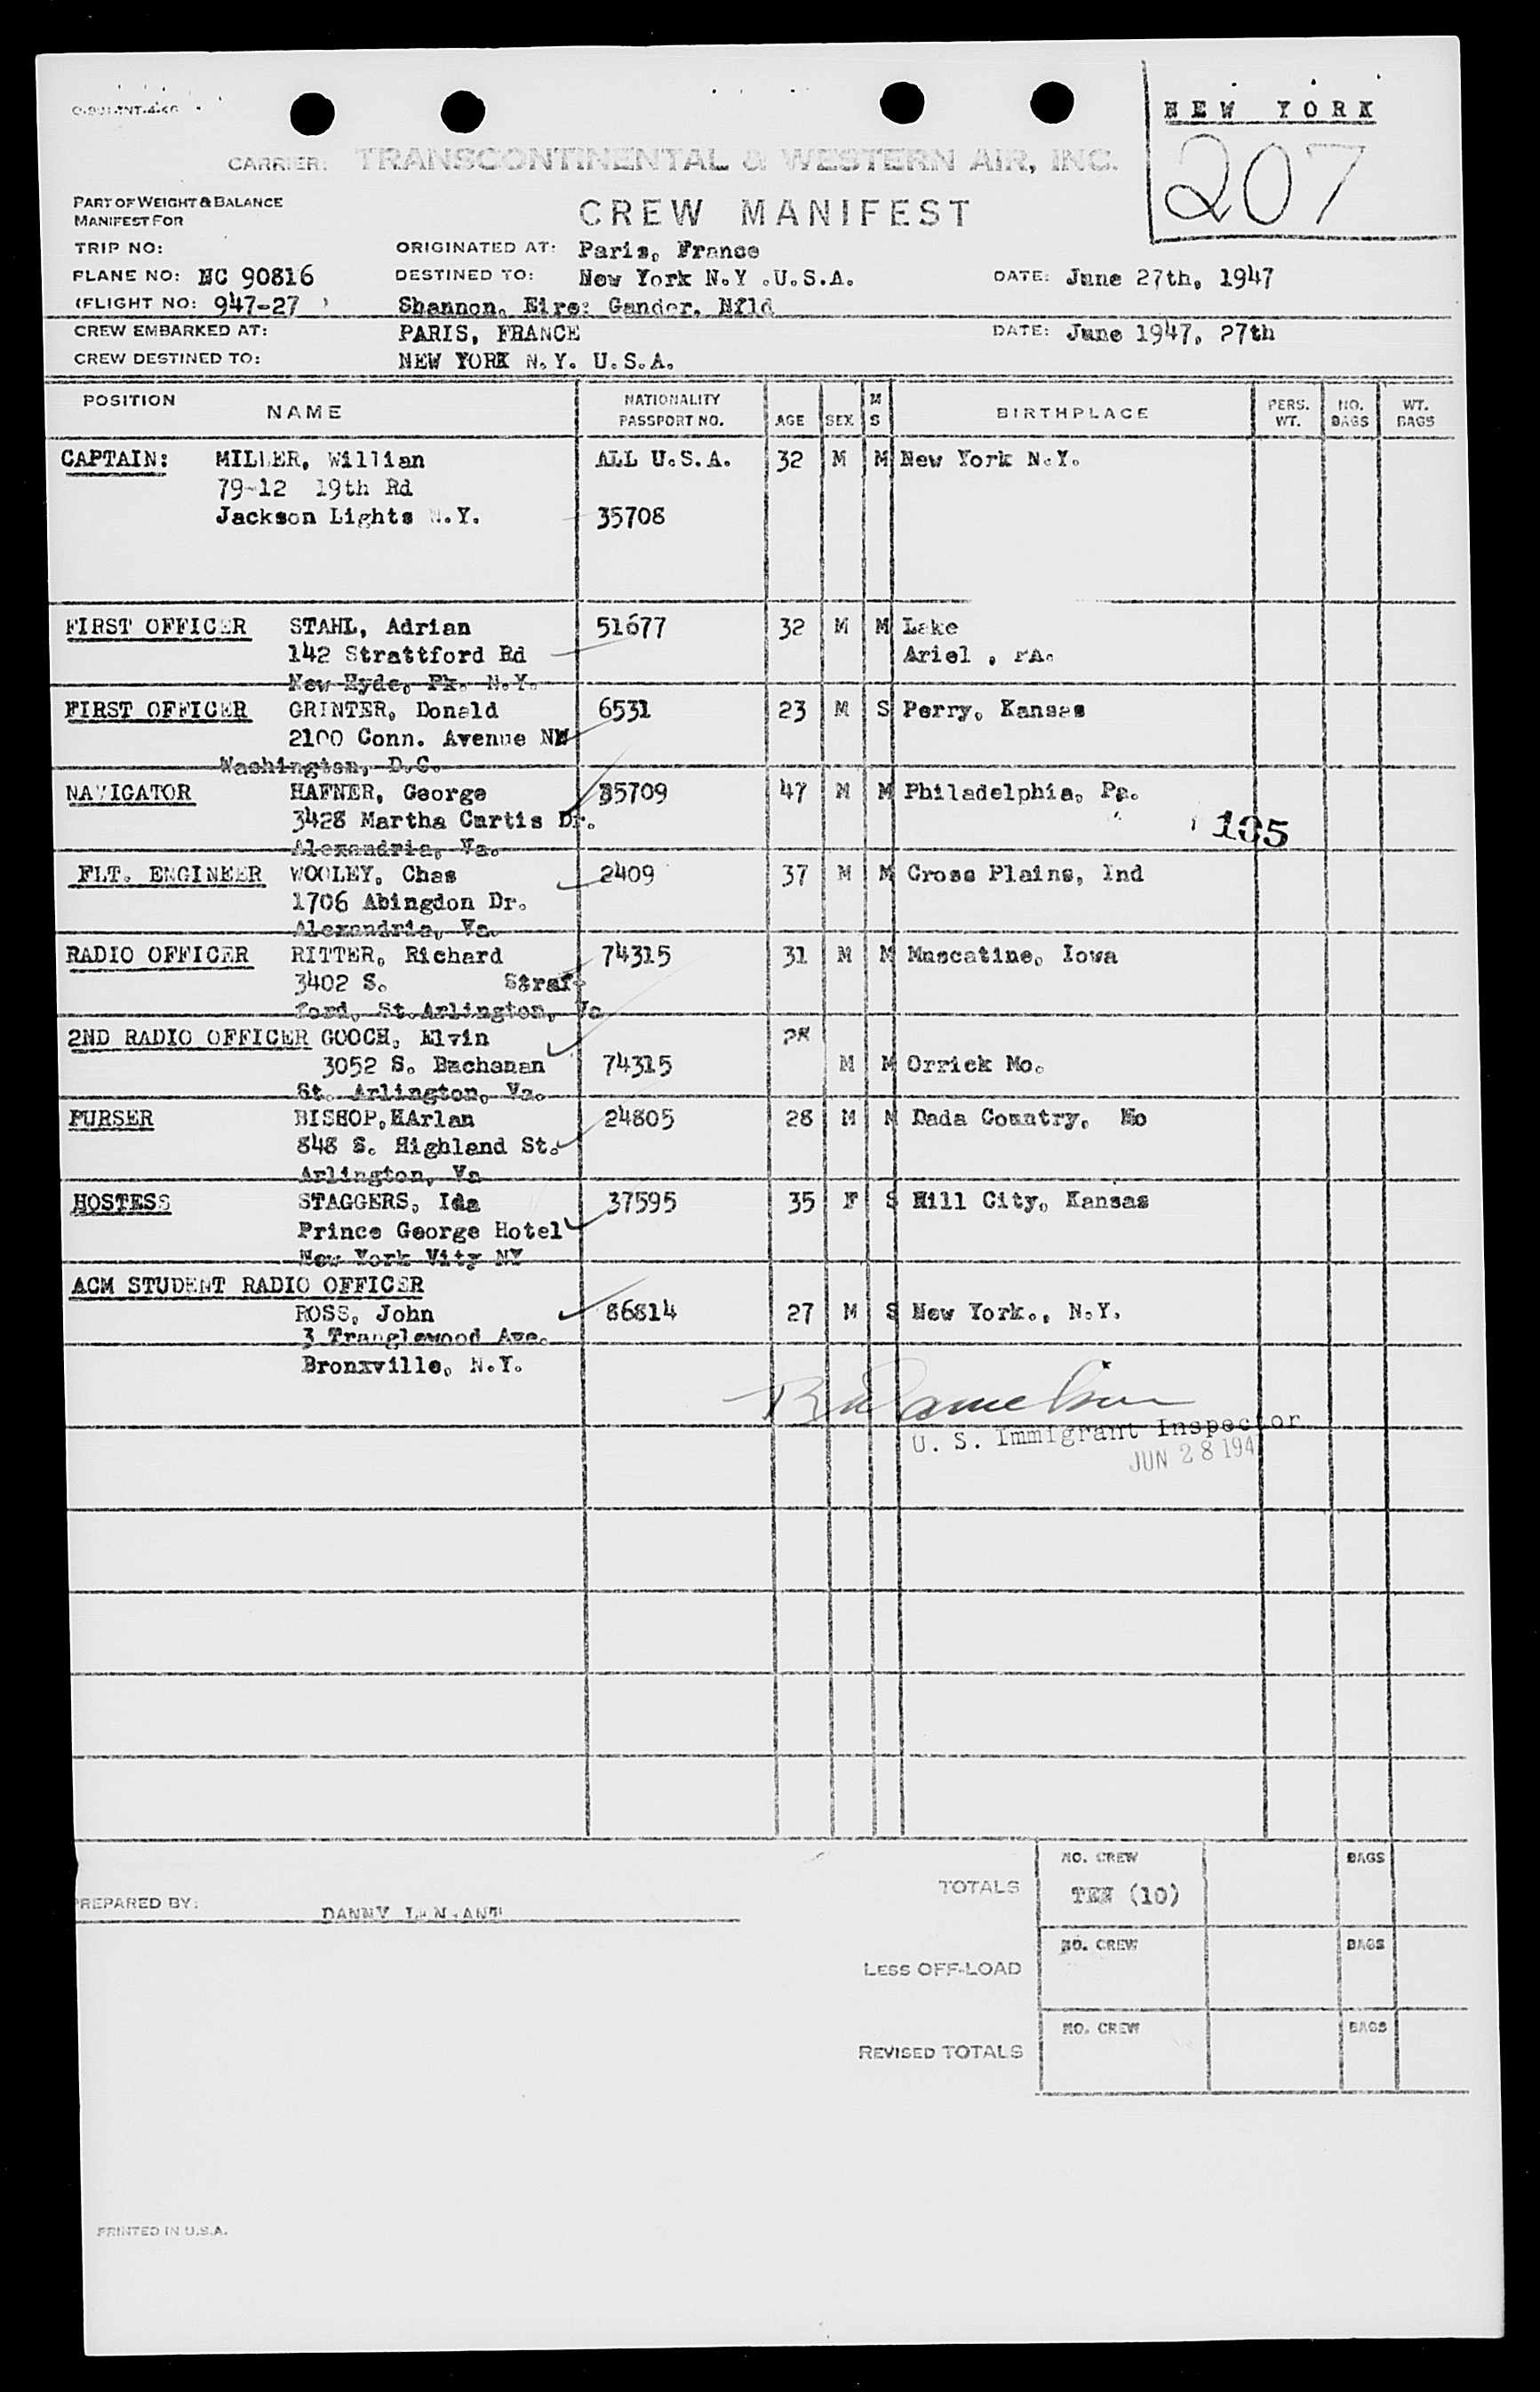 NEW YORK
207
CARRIER: TRANSCONTINENTAL & WESTERN AIR, INC.
PART OF WEIGHT & BALANCE
MANIFEST FOR
CREW MANIFEST
TRIP NO: ORIGINATED AT: Paris, France
PLANE NO: NC 90816 DESTINED TO: New York N.Y .U.S.A. DATE: June 27th, 1947
(FLIGHT NO: 947-27 ) Shannon, Eire: Gander, Nfld
CREW EMBARKED AT: PARIS, FRANCE DATE: June 1947, 27th
CREW DESTINED TO: NEW YORK N.Y. U.S.A.
POSITION NAME NATIONALITY PASSPORT NO. AGE SEX M S BIRTHPLACE PERS. WT. NO. BAGS WT. BAGS
CAPTAIN: MILLER, Willian ALL U.S.A. 32 M M New York N.Y.
79-12 19th Rd
Jackson Lights N.Y. 35708
FIRST OFFICER STAHL, Adrian 51677 32 M M Lake
142 Strattford Rd Ariel , PA.
New Hyde, Pk. N.Y.
FIRST OFFICER GRINTER, Donald 6531 23 M S Perry, Kansas
2100 Conn. Avenue NW
Washington, D.C.
NAVIGATOR HAFNER, George 35709 47 M M Philadelphia, Pa.
3428 Martha Curtis Dr. 135
Alexandria, Va.
FLT. ENGINEER WOOLEY, Chas 2409 37 M M Cross Plains, Ind
1706 Abingdon Dr.
Alexandria, Va.
RADIO OFFICER RITTER, Richard 74315 31 M M Muscatine, Iowa
3402 S. Straf-
ford, St.Arlington, Va
2ND RADIO OFFICER GOOCH, Elvin 28
3052 S. Buchanan 74315 M M Orrick Mo.
St. Arlington, Va.
PURSER BISHOP,HArlan 24805 28 M M Dada Country, Mo
848 S. Highland St.
Arlington, Va
HOSTESS STAGGERS, Ida 37595 35 F S Hill City, Kansas
Prince George Hotel
New York Vity NY
ACM STUDENT RADIO OFFICER
ROSS, John 86814 27 M S New York., N.Y.
3 Tranglewood Ave.
Bronxville, N.Y.
U. S. Immigrant Inspector
JUN 28 194
TOTALS NO. CREW BAGS
TEN (10)
PREPARED BY: DANNY
LESS OFF-LOAD NO. CREW BAGS
REVISED TOTALS NO. CREW BAGS
PRINTED IN U.S.A.